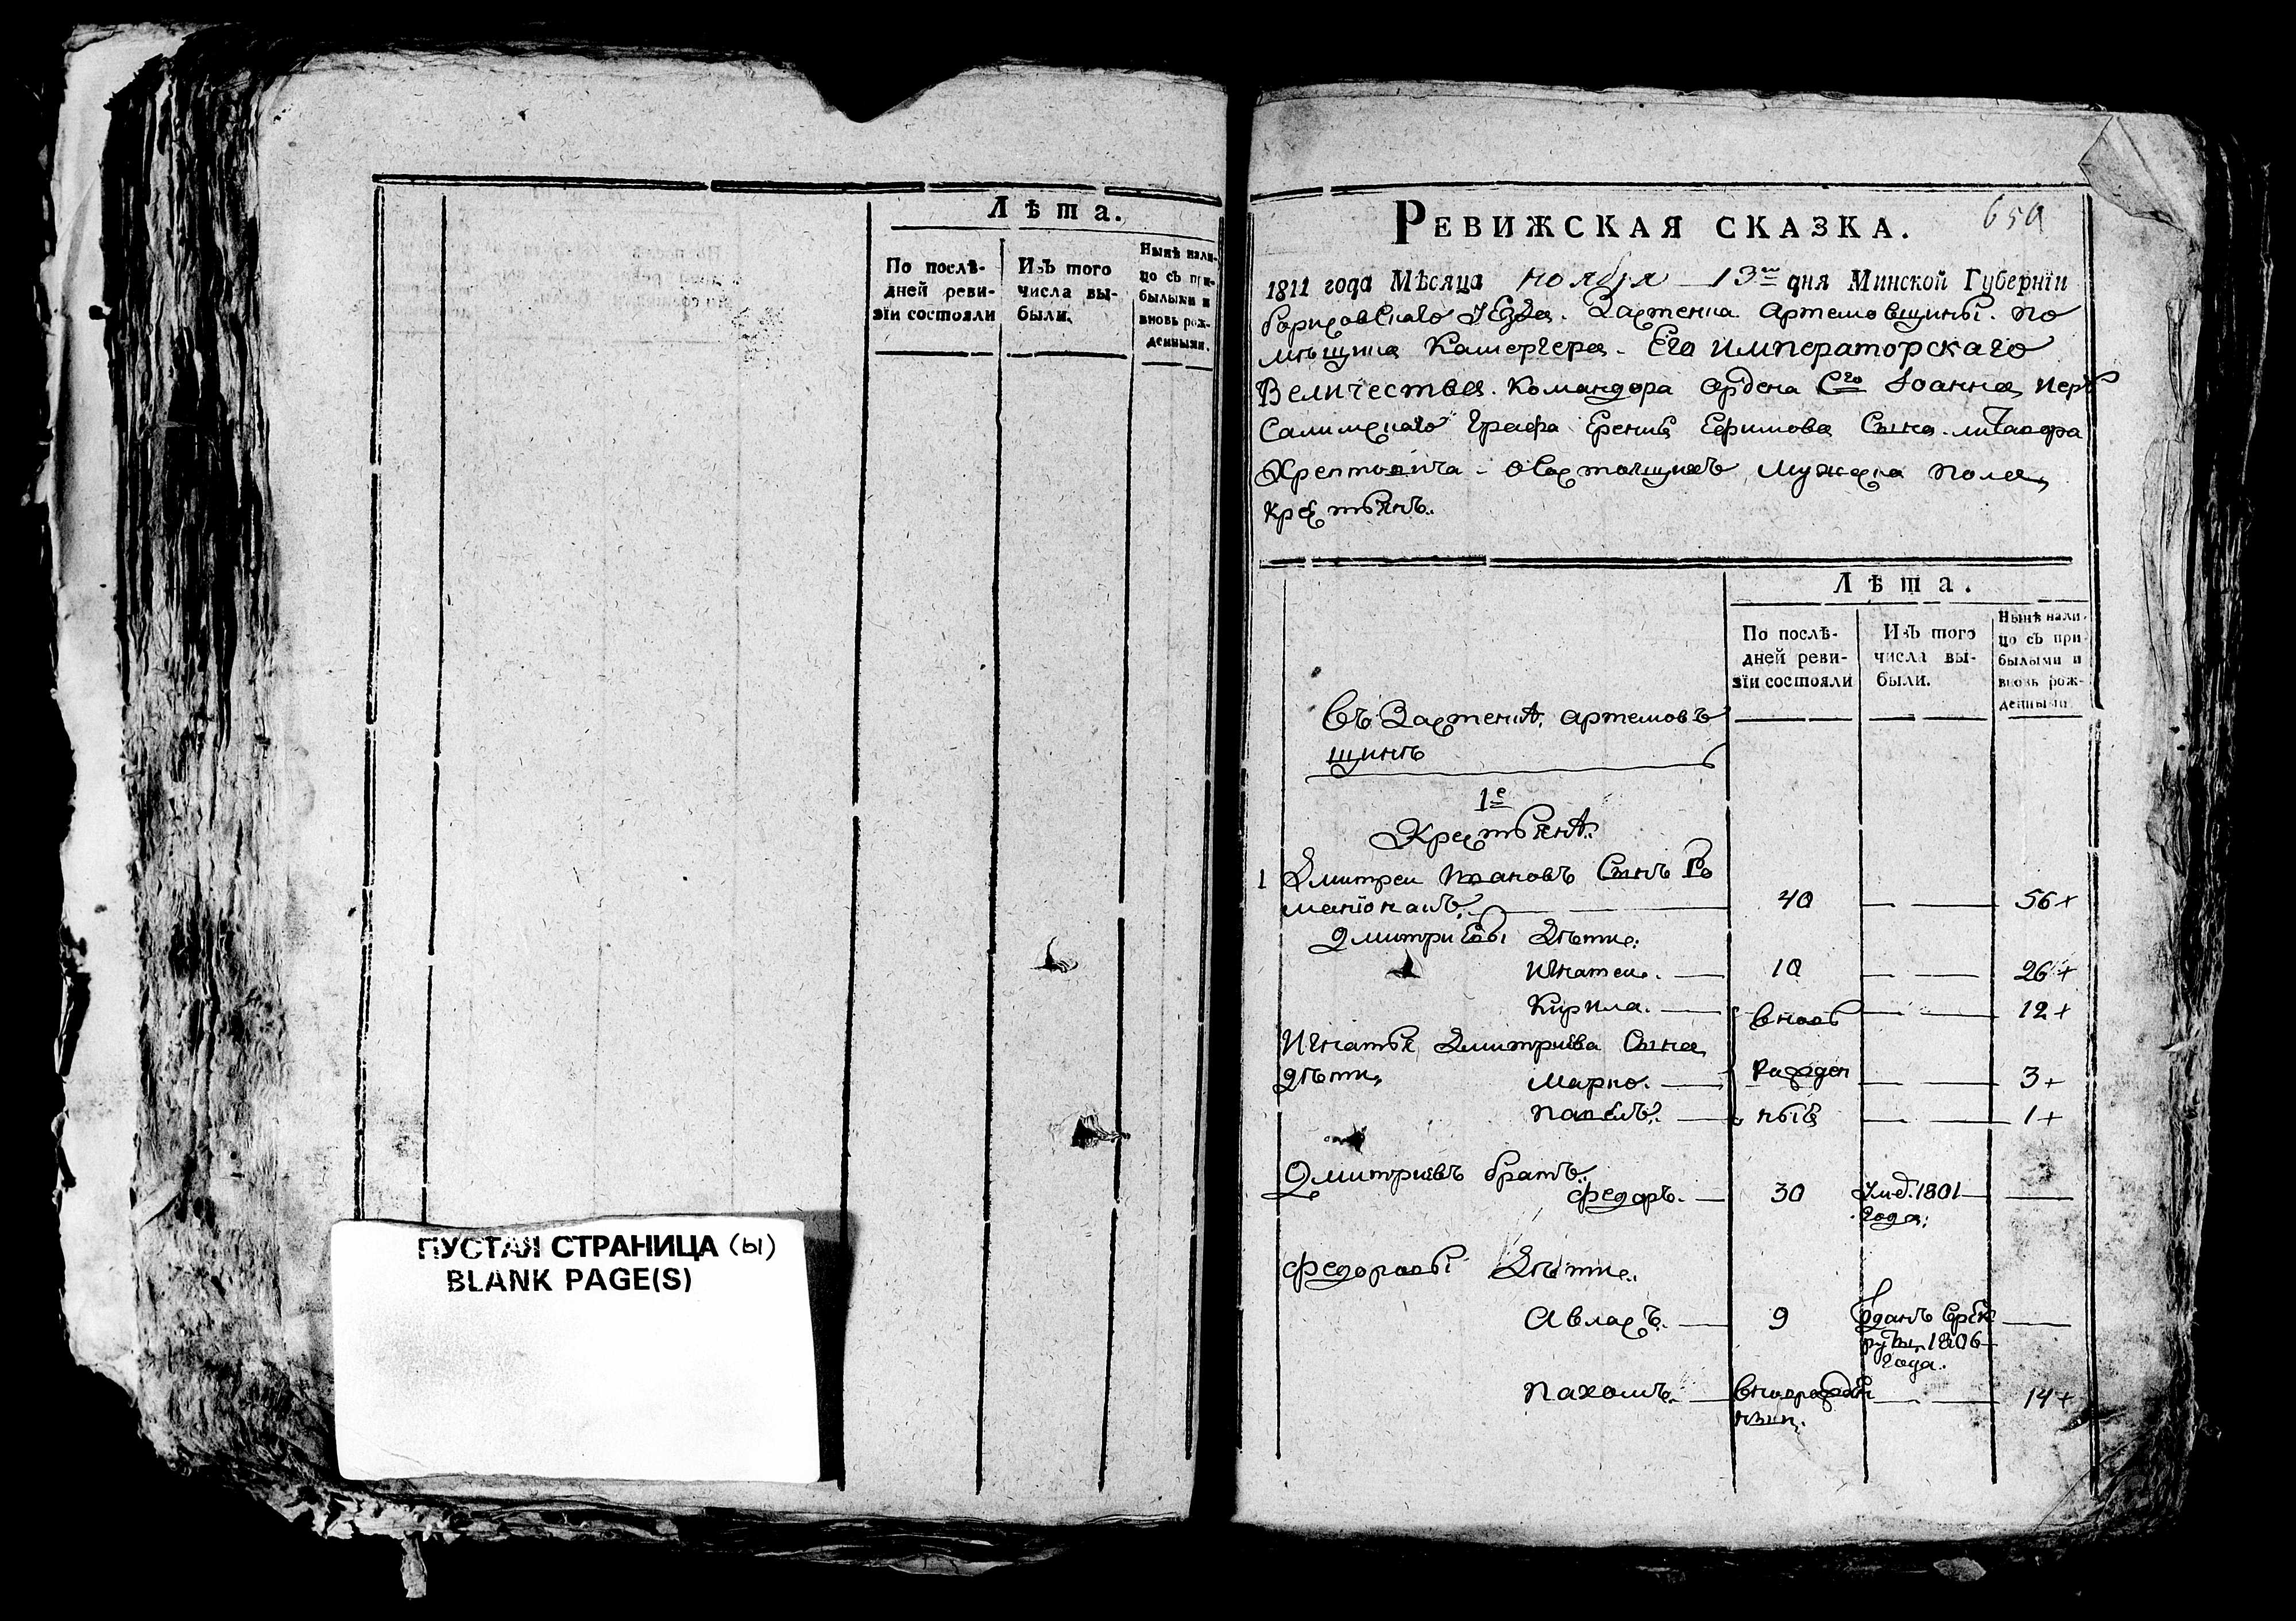 Лѣта.
По послѣ-
дней реви-
зїи состояли
Изъ того
числа вы-
были.
Нынѣ нали-
цо съ при-
былыми и
вновь рож-
денными.
ПУСТАЯ СТРАНИЦА (ы)
BLANK PAGE(S)
РЕВИЖСКАЯ СКАЗКА.
1811 года Мѣсяца ноября 13 дня Минской Губернїи
борисовскаго уезда. Застенка Артемовщины. по
мѣщика Камергера. Его императорскаго
Величества. Командора ордена Сго Іоанна, иеру
салимскаго графа Ерениа Ефимова Сына литавора
Хрептовича - осостоящихъ мужеска пола,
крестьянъ.
Лѣта.
По послѣ-
дней реви-
зїи состояли
Изъ того
числа вы-
были.
Нынѣ нали-
цо съ при-
былыми и
вновь рож-
денными
Въ Застенкѣ артемовъ
щинѣ
1е
Крестьянѣ.
1 Дмитреи Ивановъ Сынъ Ро
манïонакъ. 40 — — 56+
Дмитриевы Дѣти:
Игнатеи. — 10 — — 26+
Кирила. — вновь — — 12+
Игнатья Дмитриева Сына
дѣти, Марко. — рожден — — 3+
павелъ. — ныѣ — — 1+
Дмитриевъ братъ.
федоръ. — 30 Умер. 1801 —
года.
федоровы Дѣти.
Авласъ. — 9 отданъ врек
руты 1806 —
года.
пахомъ. — вновь рожден — — 14+
ныи.